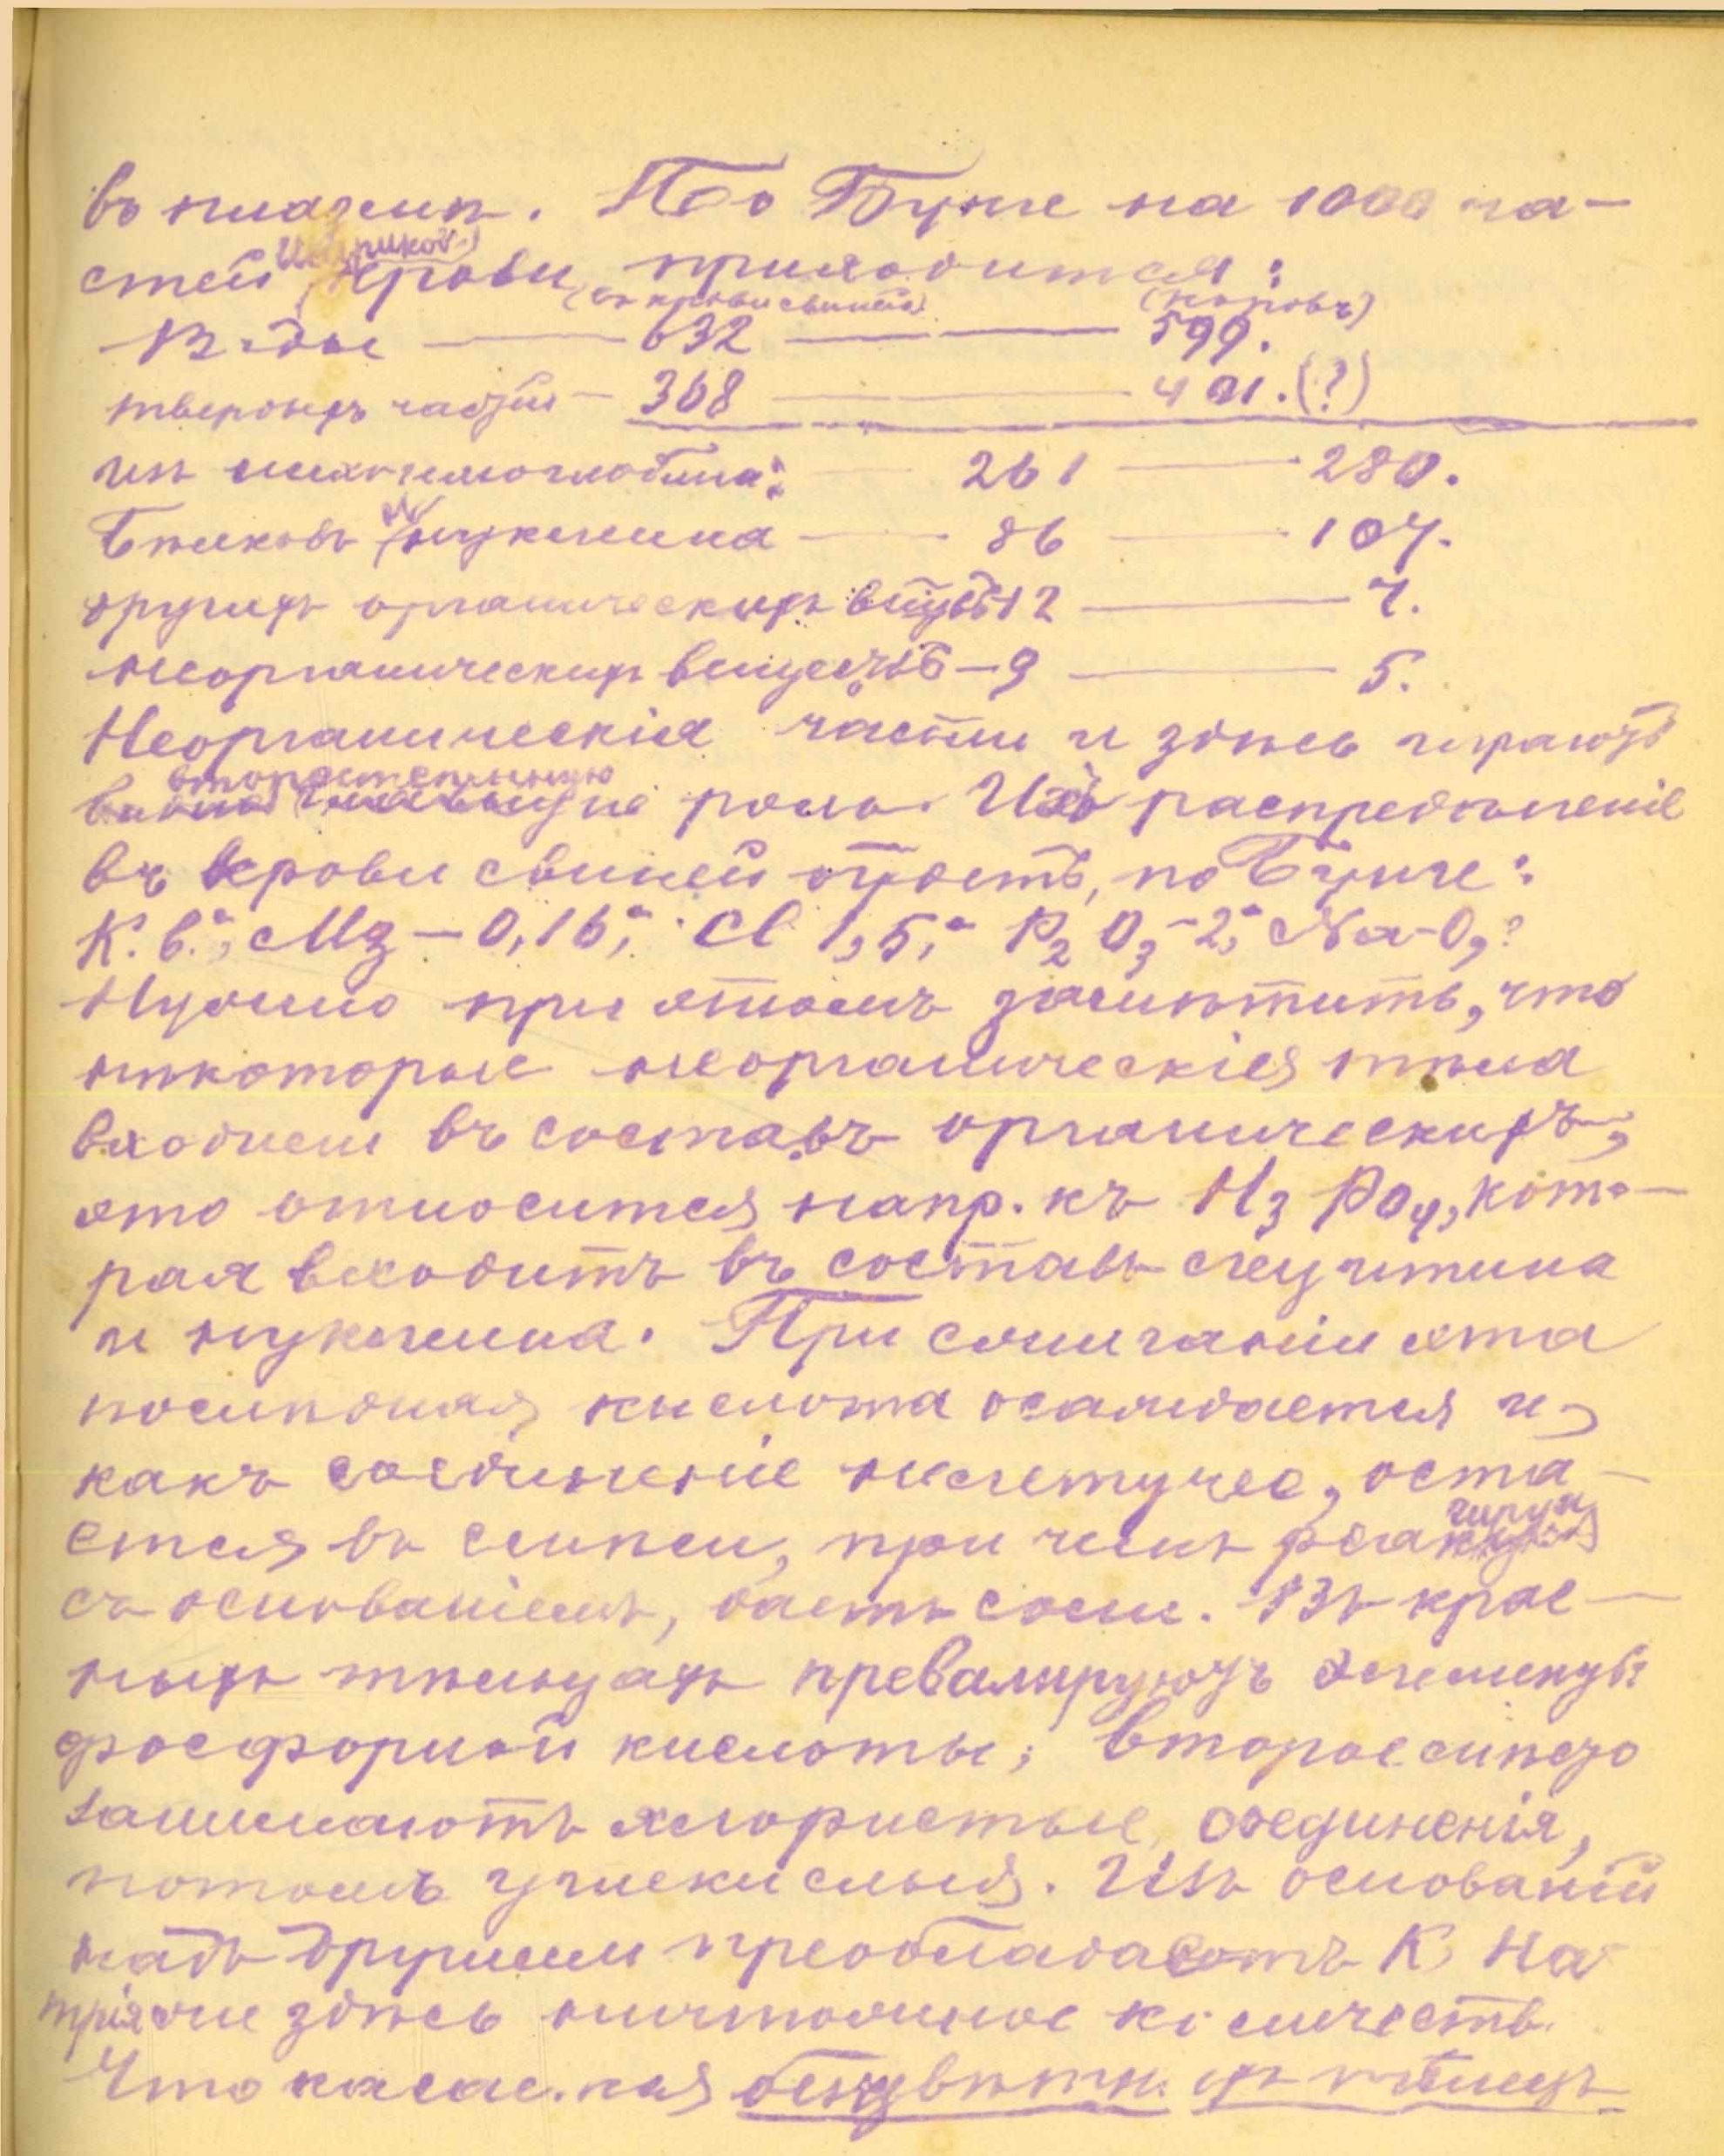 въ плазмѣ. По Бунге на 1000 ча-
стей крови приходится:
(въ крови свиней) (коровъ)
Воды — 632 — 599.
твердыхъ частей — 368 — 401. (?)
изъ нихъ гемоглобина: — 261 — 280.
Бѣлковъ и нуклеина — 86 — 107.
другихъ органическихъ вещ. 12 — 7.
неорганическихъ веществъ — 9 — 5.
Неорганическія части и здѣсь играютъ
второстепенную
роль. Ихъ распредѣленіе
въ крови свиней будетъ, по Бунге:
Mg — 0,16; Cl 1,5; P2O5 - 2; Na - 0,?
Нужно при этомъ замѣтить, что
нѣкоторые неорганическія тѣла
входятъ въ составъ органическихъ,
это относится напр. къ H3PO4, кото-
рая входитъ въ составъ лецитина
и нуклеина. При сжиганіи эта
послѣдная кислота осаждается и,
какъ соединеніе нелетучее, оста-
ется въ смѣси, при чемъ реагируя
съ основаніемъ, даетъ соли. Въ крас-
ныхъ тѣльцахъ превалируютъ элементы
фосфорной кислоты; второе мѣсто
занимаютъ хлористые соединенія,
потомъ углекислыя. Изъ основаній
надъ другими преобладаетъ K, На
трія же здѣсь ничтожное количеств.
Что касается безцвѣтныхъ тѣлецъ